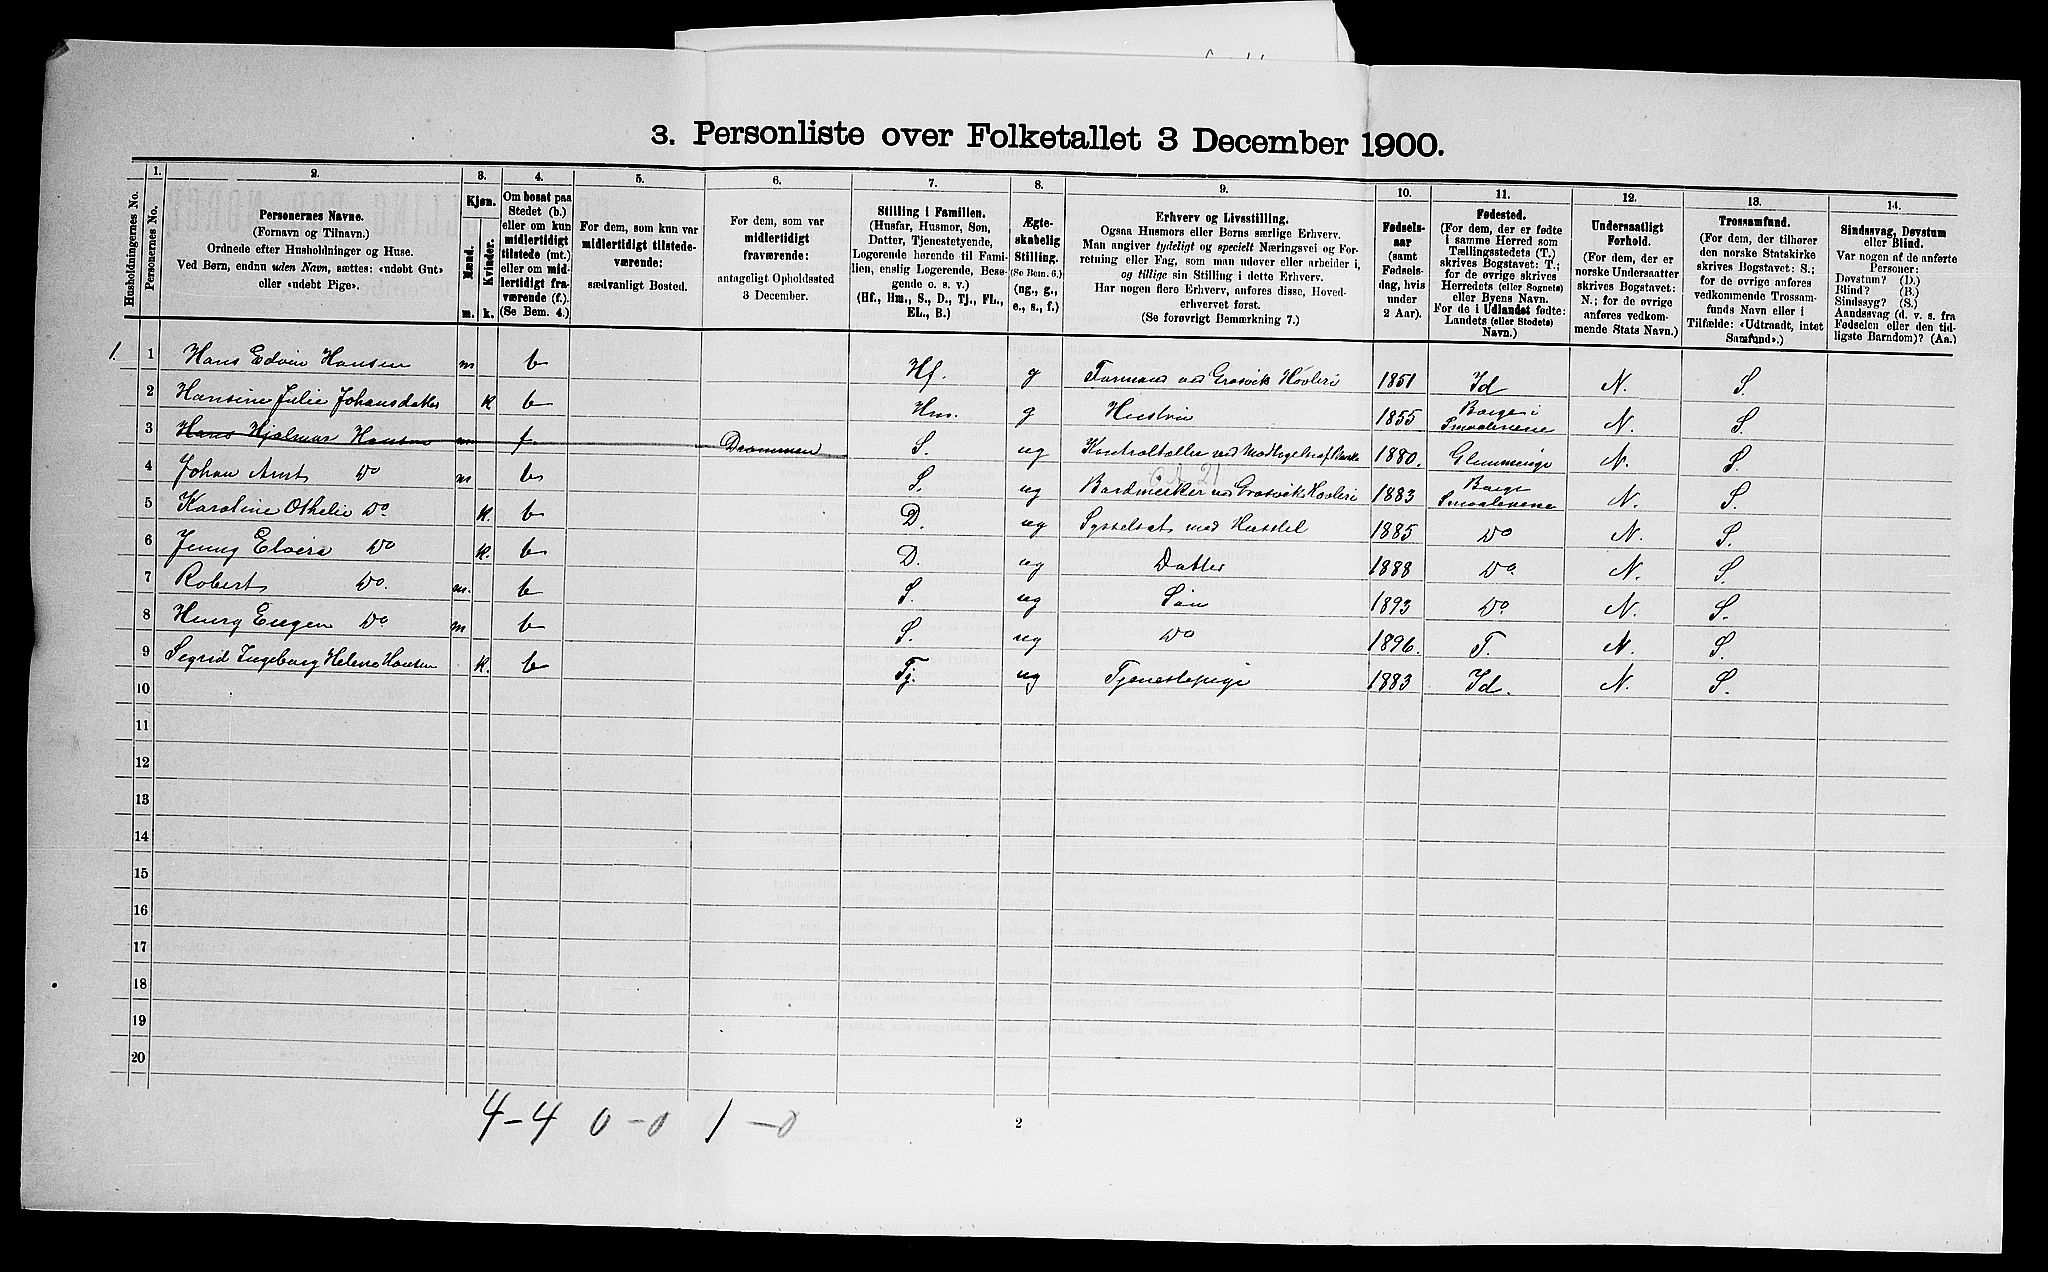 3. Personliste over Folketallet 3 December 1900.
Husholdningernes No.
1.
Personernes No.
2.
Personernes Navne.
(Fornavn og Tilnavn.)
Ordnede efter Husholdninger og Huse.
Ved Børn, endnu uden Navn, sættes: «udøbt Gut»
eller «udøbt Pige».
3.
Kjøn.
Mænd.
Kvinder.
m. k.
4.
Om bosat paa
Stedet (b.)
eller om kun
midlertidigt
tilstede (mt.)
eller om mid-
lertidigt fra-
værende (f.).
(Se Bem. 4.)
5.
For dem, som kun var
midlertidigt tilstede-
værende:
sædvanligt Bosted.
6.
For dem, som var
midlertidigt
fraværende:
antageligt Opholdssted
3 December.
7.
Stilling i Familien.
(Husfar, Husmor, Søn,
Datter, Tjenestetyende,
Logerende hørende til Fami-
lien, enslig Logerende, Besø-
gende o. s. v.)
(Hf., Hm., S., D., Tj., FL.,
EL., B.)
8.
Ægte-
skabelig
Stilling.
(Se Bem. 6.)
(ug., g.,
e., s., f.)
9.
Erhverv og Livsstilling.
Ogsaa Husmors eller Børns særlige Erhverv.
Man angiver tydeligt og specielt Næringsvei og For-
retning eller Fag, som man udøver eller arbeider i,
og tillige sin Stilling i dette Erhverv.
Har nogen flere Erhverv, anføres disse, Hoved-
erhvervet først.
(Se forøvrigt Bemærkning 7.)
10.
Fødsels-
aar
(samt
Fødsels-
dag, hvis
under
2 Aar).
11.
Fødested.
(For dem, der er fødte
i samme Herred som
Tællingsstedets (T.)
skrives Bogstavet: T.;
for de øvrige skrives
Herredets (eller Sognets)
eller Byens Navn.
For de i Udlandet fødte:
Landets (eller Stedets)
Navn.)
12.
Undersaatligt
Forhold.
(For dem, der er
norske Undersaatter
skrives Bogstavet:
N.; for de øvrige
anføres vedkom-
mende Stats Navn.)
13.
Trossamfund.
(For dem, der tilhører
den norske Statskirke
skrives Bogstavet: S.;
for de øvrige anføres
vedkommende Trossam-
funds Navn eller i
Tilfælde: «Udtraadt, intet
Samfund».)
14.
Sindssvag, Døvstum
eller Blind.
Var nogen af de anførte
Personer:
Døvstum? (D.)
Blind? (B.)
Sindssyg? (S.)
Aandssvag (d. v. s. fra
Fødselen eller den tid-
ligste Barndom)? (Aa.)
1. 1 Hans Edvin Hansen m b Hf. g Formand ved Grosvik Høvleri 1851 Id N. S.
2 Hansine Julie Johansdatter k b Hm. g Hustru 1855 Borge i Smaalenene N. S.
3 Hans Hjalmar Hansen m f Drammen S. ug ved 1880. Glemminge N. S.
4 Johan Arnt Do m b S. ug Bordmerker ved Grosvik Høvleri 1883 Borge Smaalenene N. S.
5 Karoline Othelie Do. k. b D. ug Sysselsat med Husstel 1885 Do N. S.
6 Jenny Elvira Do k. b D. ug Datter 1888 Do. N. S.
7 Robert Do. m. b S. ug Søn 1893 Do N. S.
8 Henry Eugen Do m b S. ug Do 1896. T. N. S.
9 Sigrid Ingeborg Helene Hansen k. b Tj. ug Tjenestepige 1883 Id. N. S.
10
11
12
13
14
15
16
17
18
19
20
4-4 0-0 1-0
2